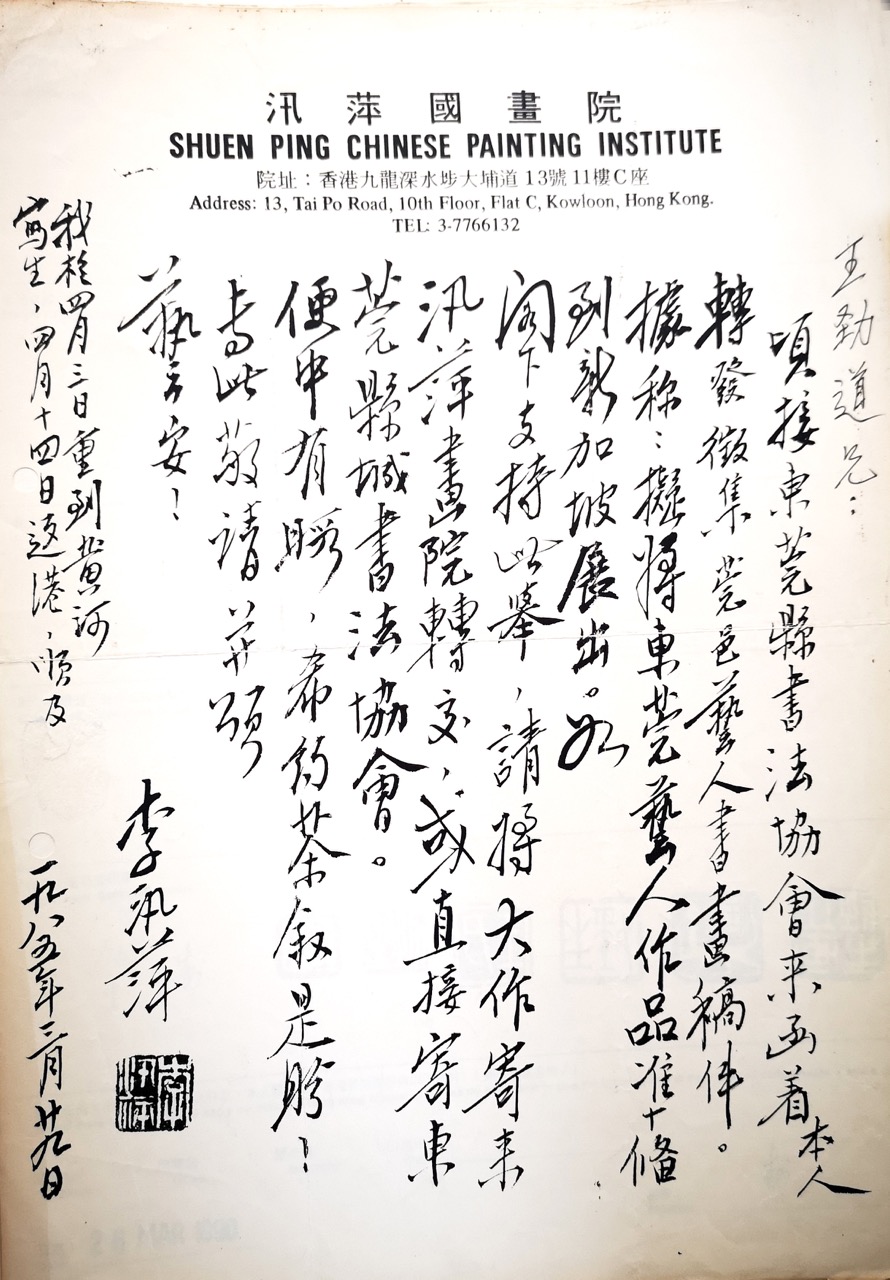 汛萍國畫院
SHUEN PING CHINESE PAINTING INSTITUTE
院址：香港九龍深水埗大埔道13號11樓C座
Address: 13, Tai Po Road, 10th Floor, Flat C, Kowloon, Hong Kong.
TEL: 3-7766132
王勁道兄：
頃接東莞縣書法協會来函着本人
轉發徵集莞邑藝人書畫稿件。
據称：擬將東莞藝人作品准備
到新加坡展出。如
阁下支持此舉，請將大作寄来
汛萍畫院轉交，或直接寄東
莞縣城書法協會。
便中有暇，希約茶叙是盼！
专此敬請並頌
藝安！
李汛萍
李汛萍
一九八五年三月廿九日
我於四月三日重到黄河
寫生，四月十四日返港，順及